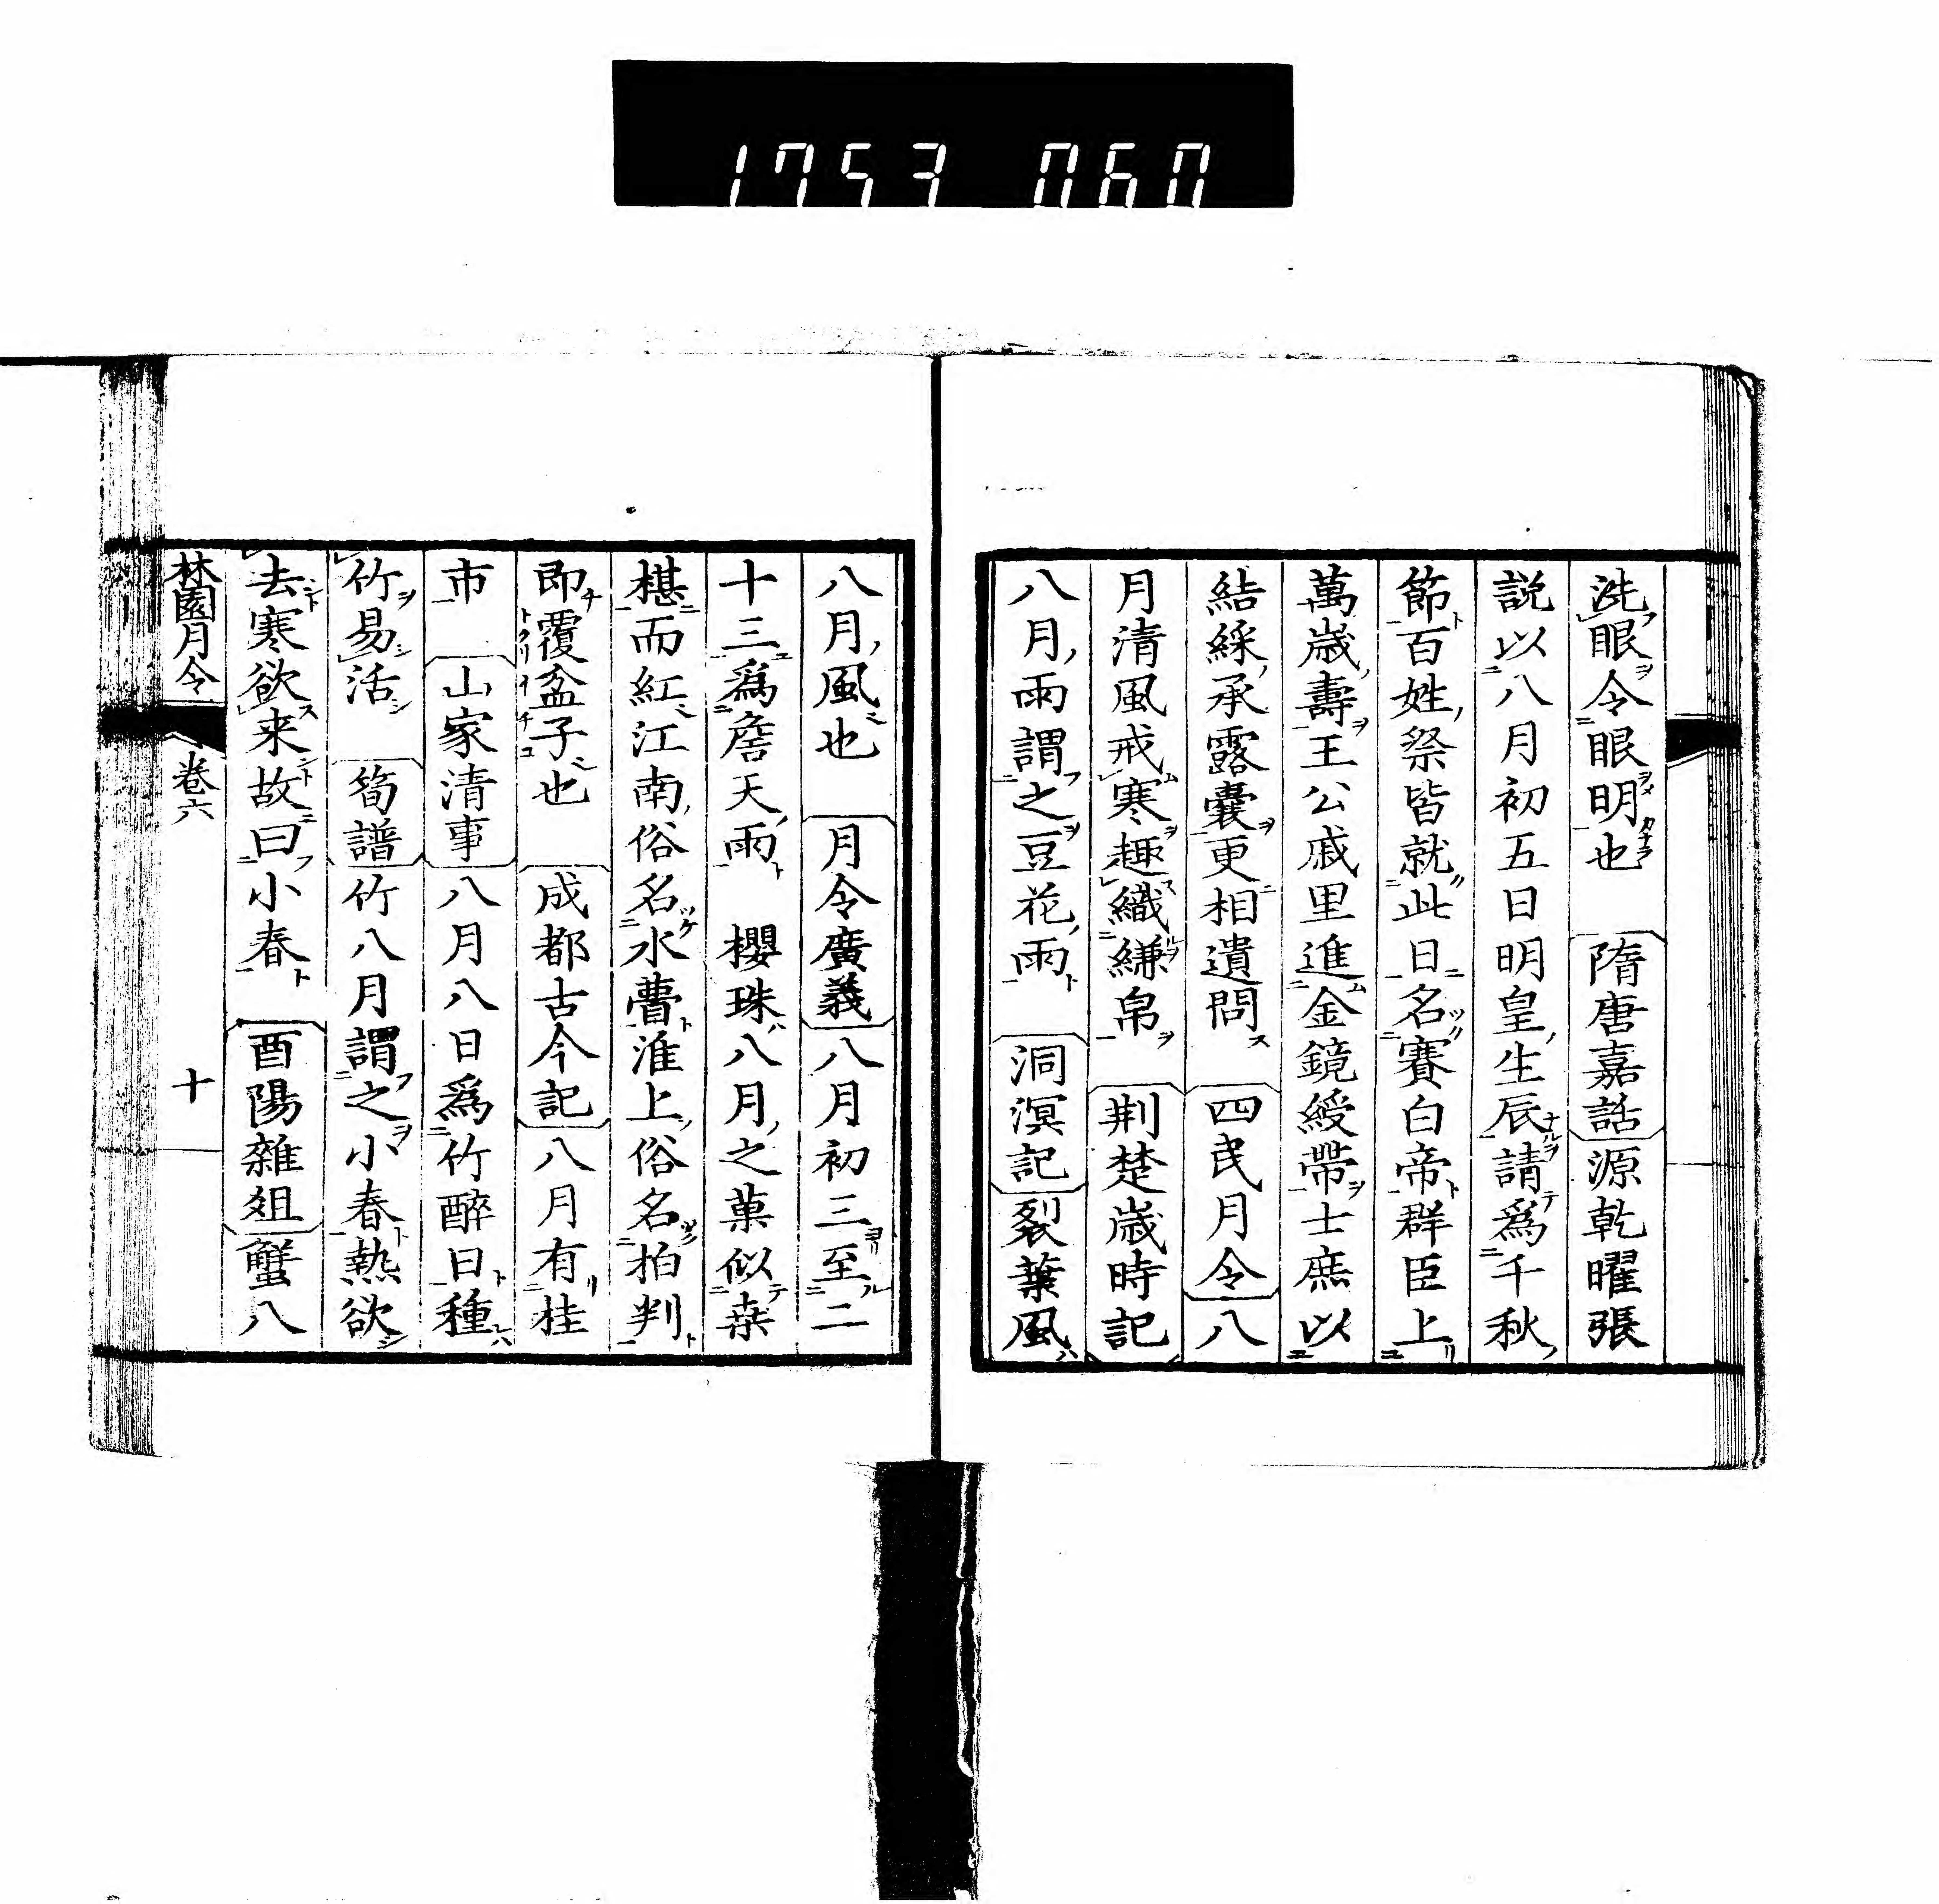 1753 060
洗眼令眼明也　隋唐嘉話源乾曜張
説以八月初五日明皇生辰請爲千秋
節百姓祭皆就此日名賽白帝群臣上
萬歳壽王公戚里進金鏡綬帶士庶以
結綵承露囊更相遺問　四民月令八
月清風戒寒趣織縑帛　荆楚歳時記
八月雨謂之豆花雨　洞溟記裂葉風
八月風也　月令廣義八月初三至二
十三爲詹天雨　櫻珠八月之菓似葚
椹而紅江南俗名水薔淮上俗名拍判
即覆盆子也　成都古今記八月有桂
市　山家清事八月八日爲竹醉日種
竹易活　筍譜竹八月謂之小春熱欲
去寒欲来故曰小春　酉陽雜俎蟹八
林園月令　卷六　十